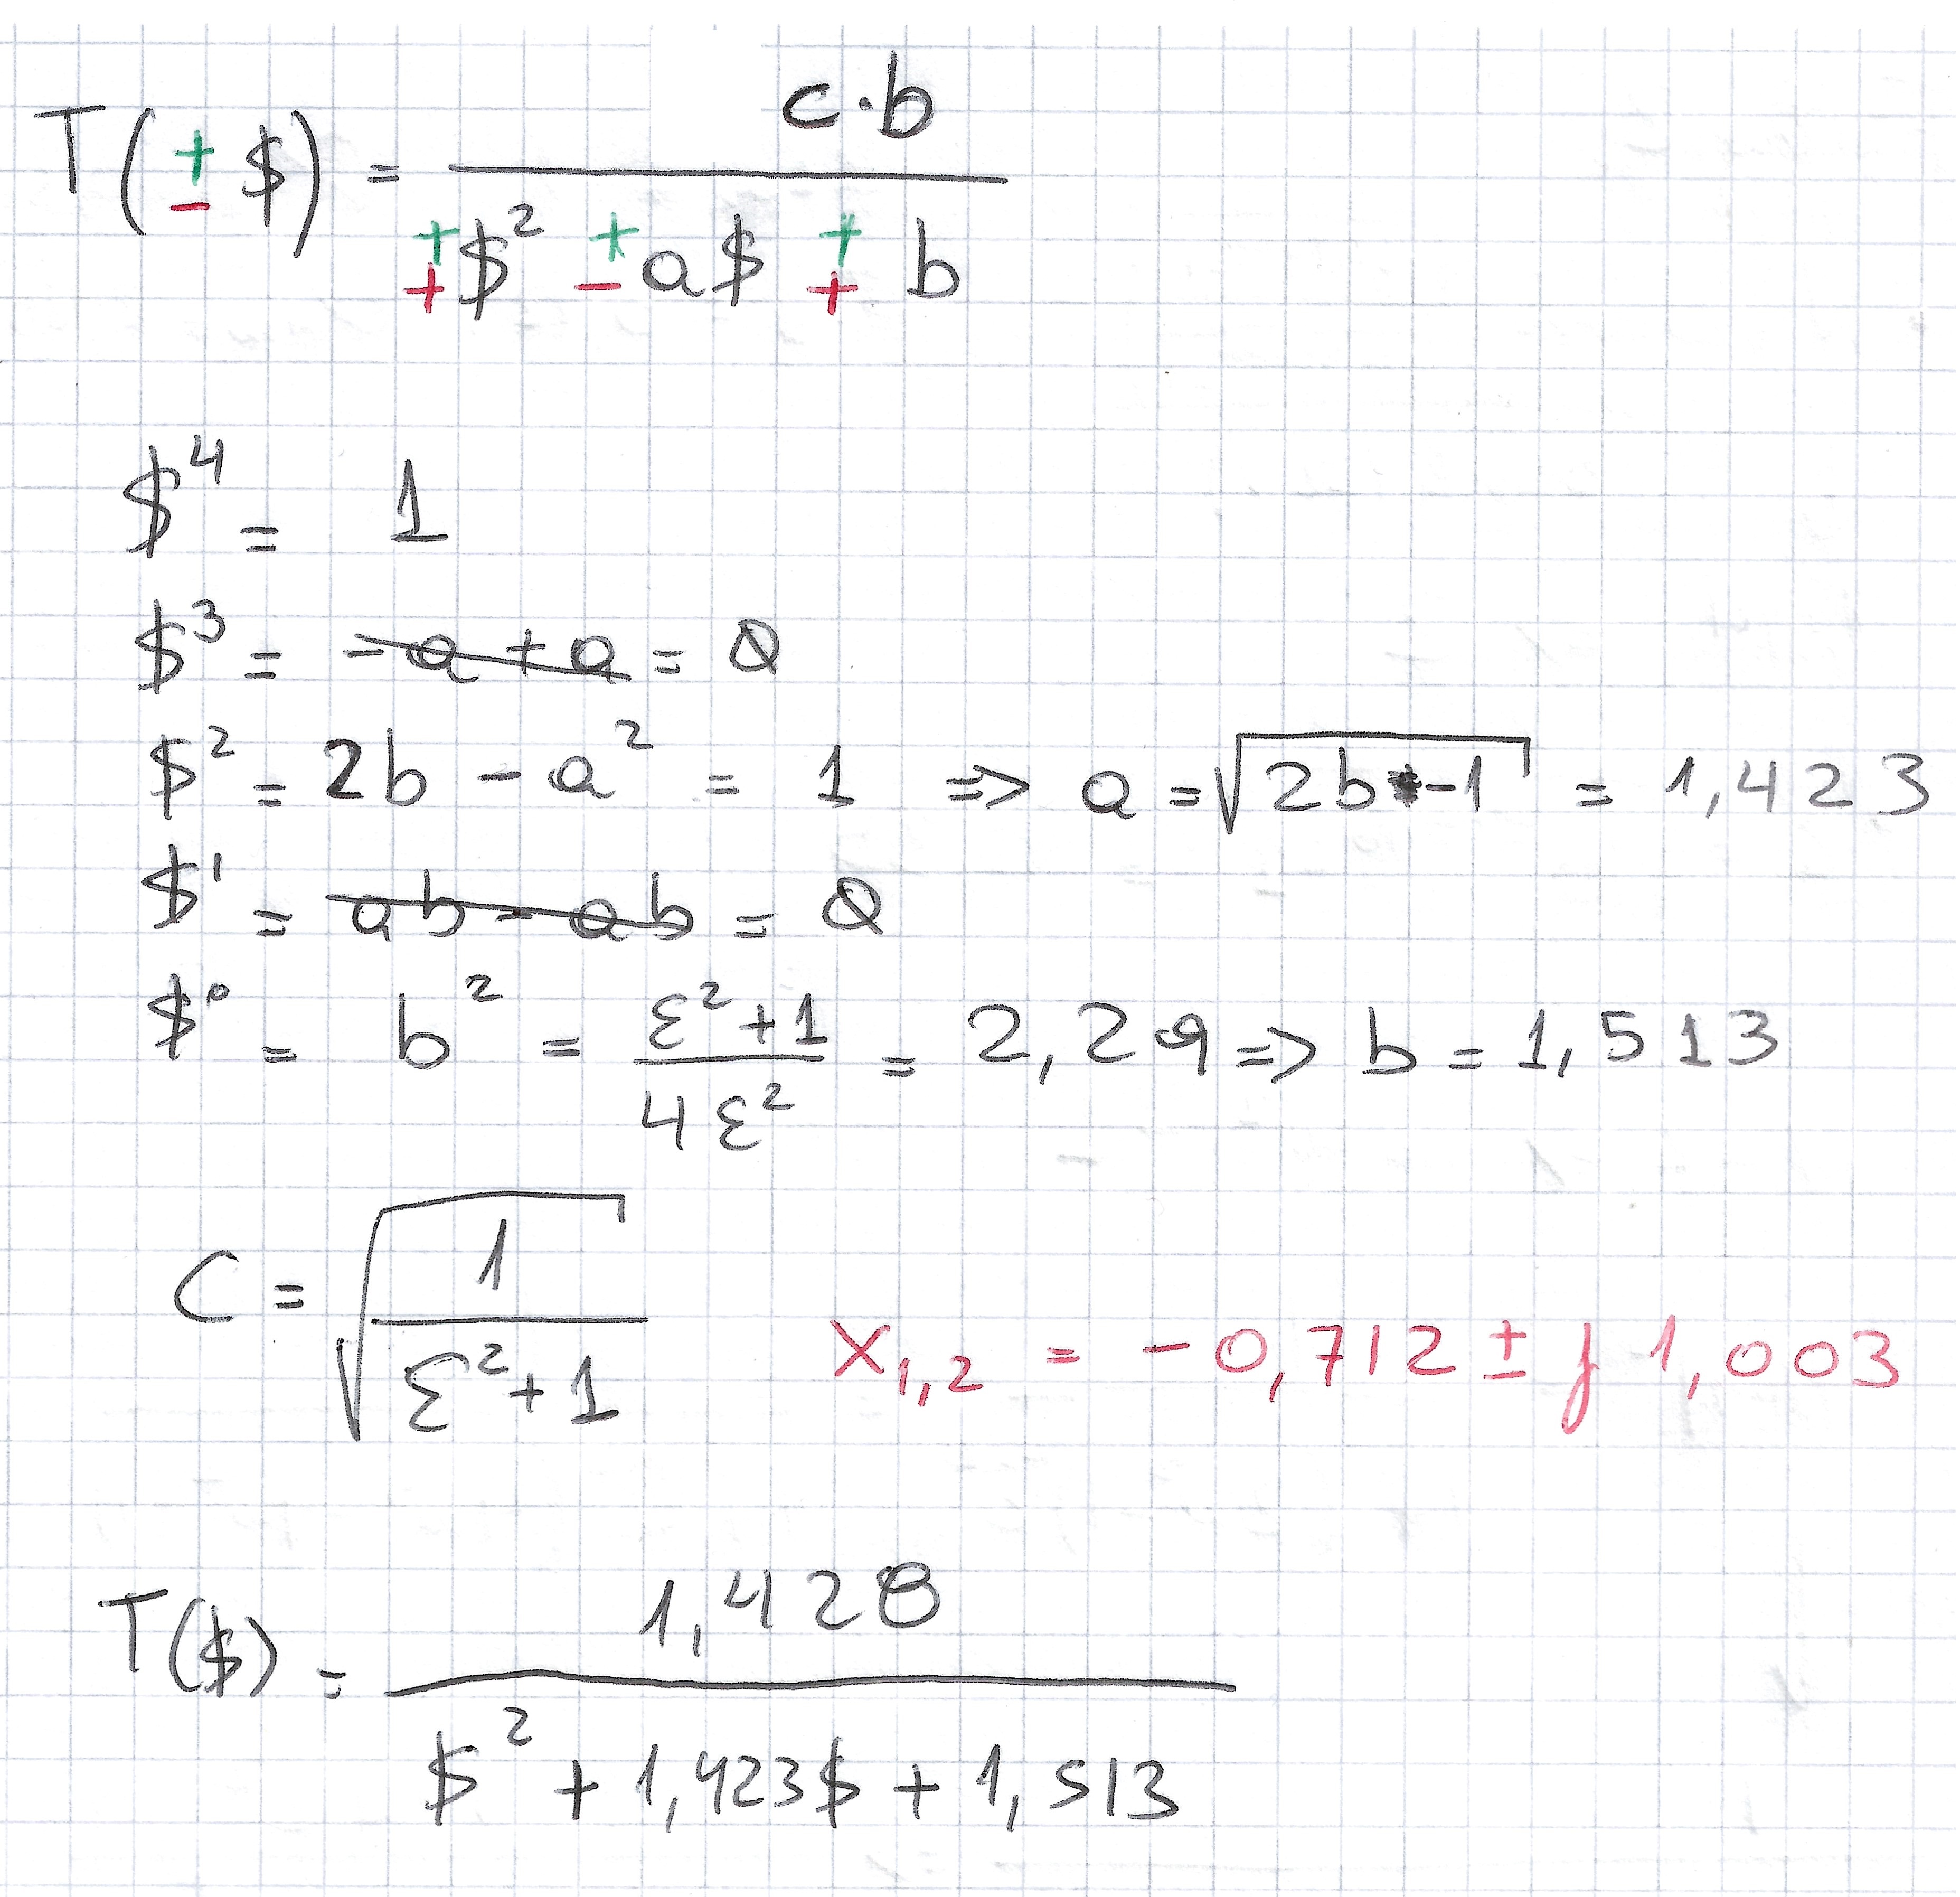 T(± $) = c·b / +$² ± a$ + b
$⁴ = 1
$³ = -a + a = 0
$² = 2b - a² = 1 => a = √(2b - 1) = 1,423
$¹ = ab - ab = 0
$⁰ = b² = (ε² + 1) / (4ε²) = 2,29 => b = 1,513
C = √(1 / (ε² + 1))
X₁,₂ = -0,712 ± j 1,003
T($) = 1,428 / ($² + 1,423$ + 1,513)